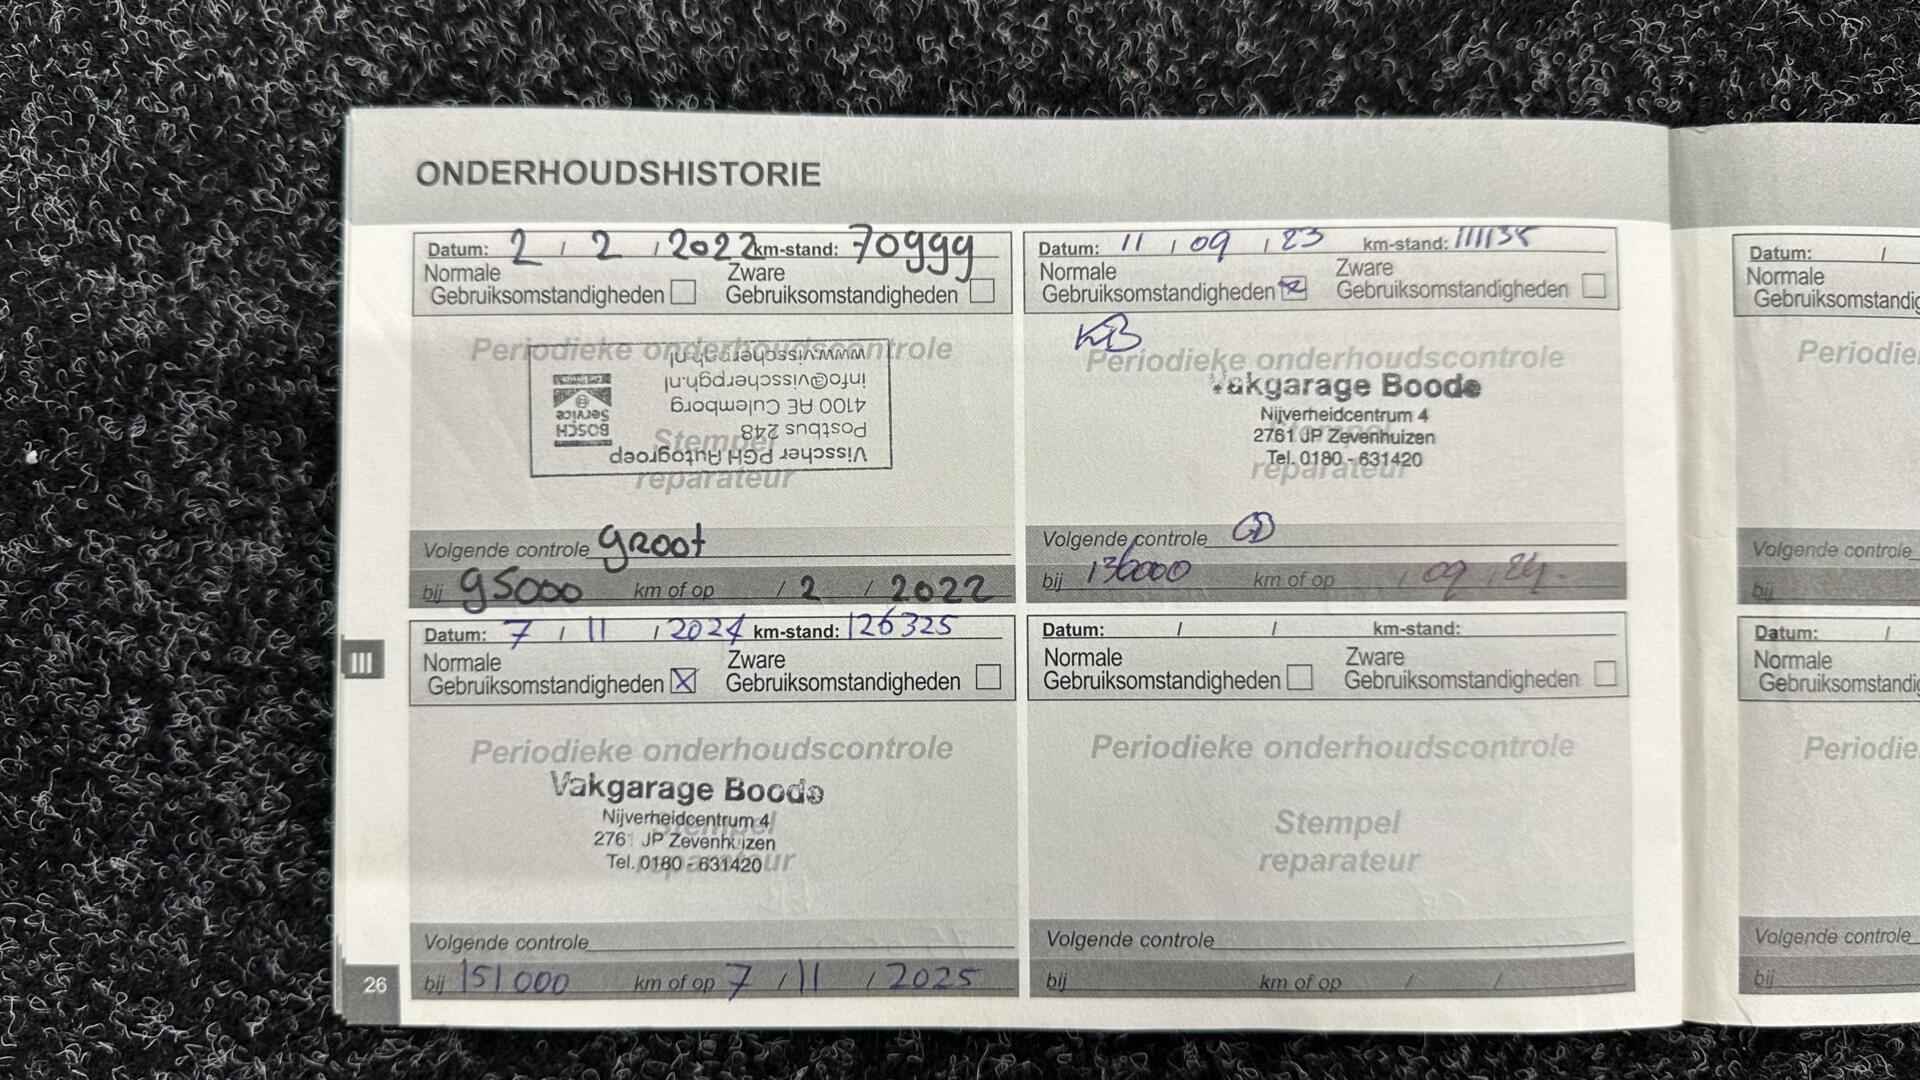 ONDERHOUDSHISTORIE
Datum: 2 / 2 / 2022 km-stand: 70999
Normale
Gebruiksomstandigheden
Zware
Gebruiksomstandigheden
Periodieke onderhoudscontrole
Stempel
reparateur
Visscher PGH Autogroep
Postbus 248
4100 AE Culemborg
info@visscherpgh.nl
www.visscherpgh.nl
BOSCH
Service
Volgende controle groot
bij 95000 km of op / 2 / 2022
Datum: 11 / 09 / 23 km-stand:
Normale
Gebruiksomstandigheden
Zware
Gebruiksomstandigheden
KB
Periodieke onderhoudscontrole
Vakgarage Boode
Nijverheidcentrum 4
2761 JP Zevenhuizen
Tel. 0180 - 631420
reparateur
Volgende controle
bij 136000 km of op / 09 / 24
Datum: 7 / 11 / 2024 km-stand: 126325
Normale
Gebruiksomstandigheden X
Zware
Gebruiksomstandigheden
Periodieke onderhoudscontrole
Vakgarage Boode
Nijverheidcentrum 4
2761 JP Zevenhuizen
Tel. 0180 - 631420
Stempel
reparateur
Volgende controle
bij 151000 km of op 7 / 11 / 2025
Datum: / / km-stand:
Normale
Gebruiksomstandigheden
Zware
Gebruiksomstandigheden
Periodieke onderhoudscontrole
Stempel
reparateur
Volgende controle
bij km of op / /
III
26
Datum: /
Normale
Gebruiksomstandig
Periodie
Volgende controle
bij
Datum: /
Normale
Gebruiksomstandig
Periodie
Volgende controle
bij